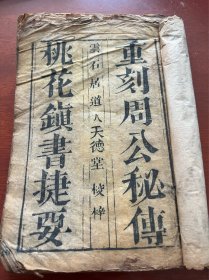 重刻周公秘傳
雲石居道人天德堂梭梓
桃花鎮書捷要